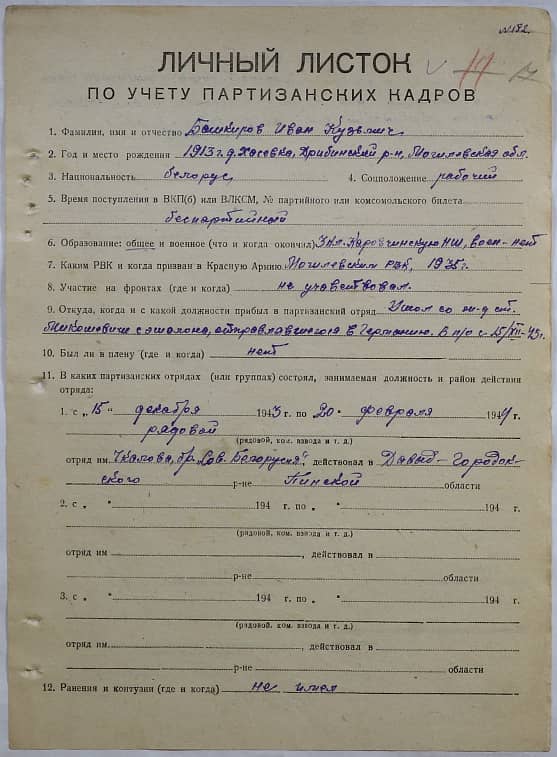 №182.
ЛИЧНЫЙ ЛИСТОК
ПО УЧЕТУ ПАРТИЗАНСКИХ КАДРОВ
1. Фамилия, имя и отчество Башкиров Иван Кузьмич
2. Год и место рождения 1913 г. д. Хасовка, Дрибинский р-н, Могилевская обл.
3. Национальность белорус, 4. Соцположение рабочий
5. Время поступления в ВКП(б) или ВЛКСМ, № партийного или комсомольского билета
беспартийный
6. Образование: общее и военное (что и когда окончил) 3 кл. НШ, воен-нет
7. Каким РВК и когда призван в Красную Армию Могилевским РВК, 1935 г.
8. Участие на фронтах (где и когда) не участвовал.
9. Откуда, когда и с какой должности прибыл в партизанский отряд Ушел со ж-д ст.
Микошевичи с эшалона, отправлявшегося в Германию. В п/о с 15/XII-43 г.
10. Был ли в плену (где и когда) нет
11. В каких партизанских отрядах (или группах) состоял, занимаемая должность и район действия
отряда:
1. с „15" декабря 1943 г. по „20" февраля 1944 г.
рядовой
(рядовой, ком. взвода и т. д.)
отряд им. Чкалова, бр. „Сов. Белоруссия", действовал в Давыд-Городок-
ского р-не Пинской области
2. с „ " 194 г. по „ " 194 г.
(рядовой, ком. взвода и т. д.)
отряд им , действовал в
р-не области
3. с „ " 194 г. по „ " 194 г.
(рядовой, ком. взвода и т. д.)
отряд им. , действовал в
р-не области
12. Ранения и контузии (где и когда) не имел